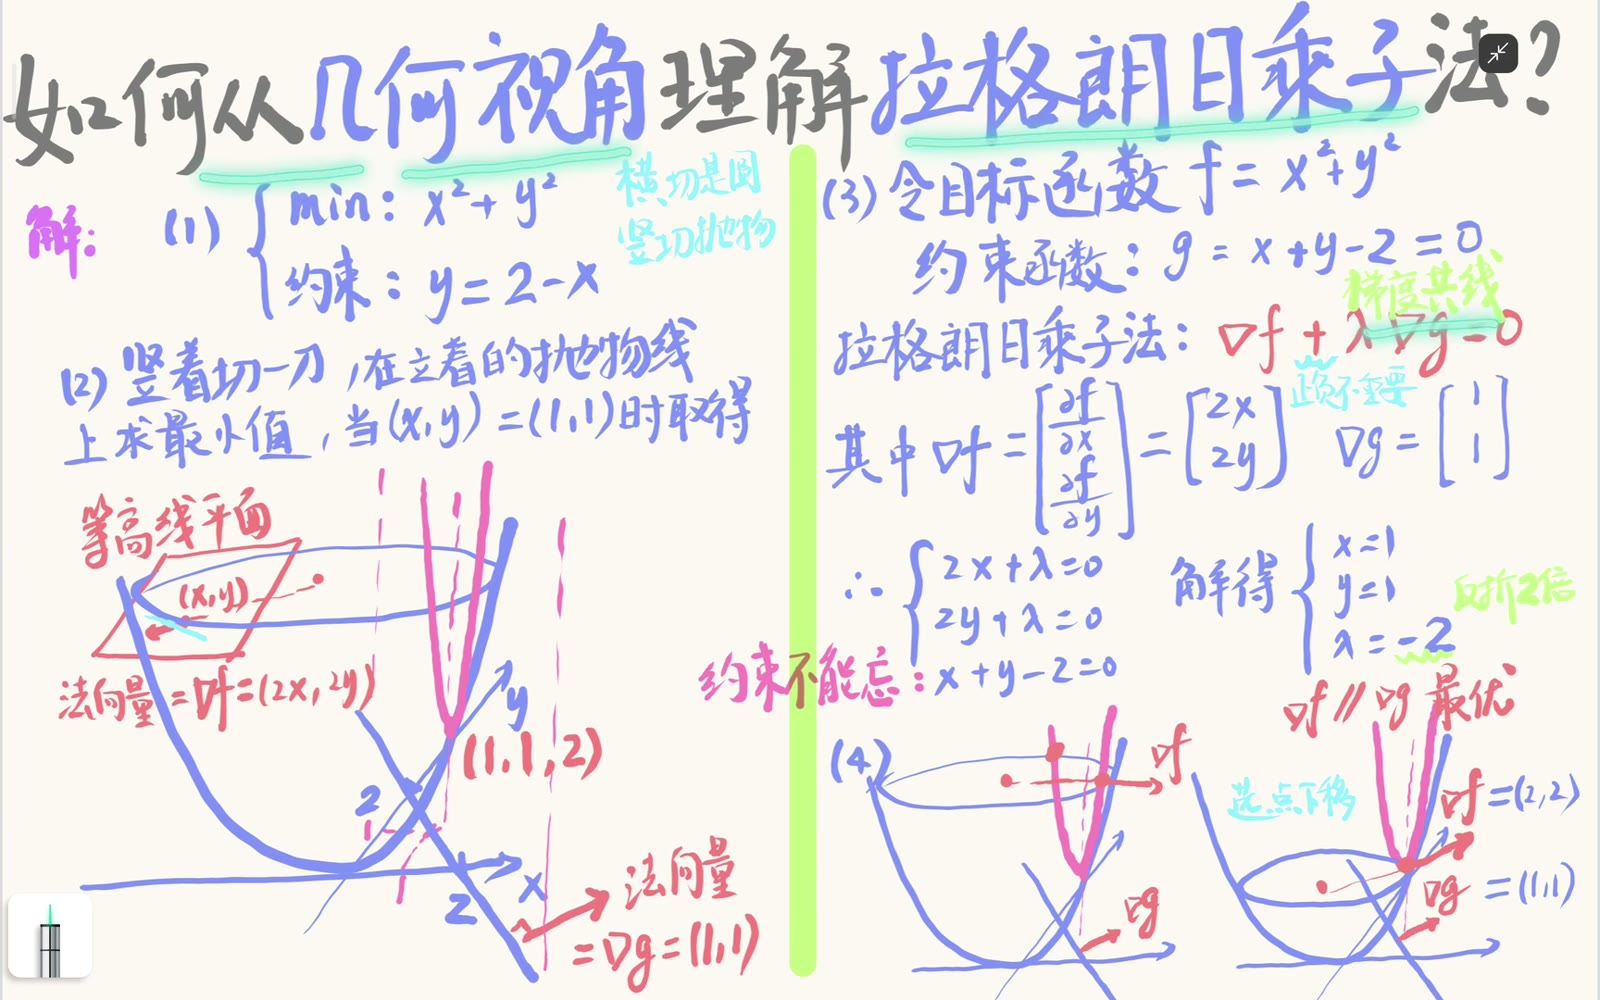 如何从几何视角理解拉格朗日乘子法?
解:
(1) { min: x²+y²
约束: y=2-x
横切是圆
竖切抛物
(2) 竖着切一刀,在立着的抛物线
上求最小值,当(x,y)=(1,1)时取得
等高线平面
(x,y)
法向量=∇f=(2x,2y)
y
(1,1,2)
2
1
x
2
法向量
=∇g=(1,1)
(3) 令目标函数 f=x²+y²
约束函数: g=x+y-2=0
梯度共线
拉格朗日乘子法: ∇f+λ∇g=0
正负不重要
其中 ∇f=[∂f/∂x ∂f/∂y]=[2x 2y] ∇g=[1 1]
∴ { 2x+λ=0
2y+λ=0
约束不能忘: x+y-2=0
解得 { x=1
y=1
λ=-2
反折2倍
∇f∥∇g 最优
(4)
∇f
∇g
选点下移
∇f=(2,2)
∇g=(1,1)